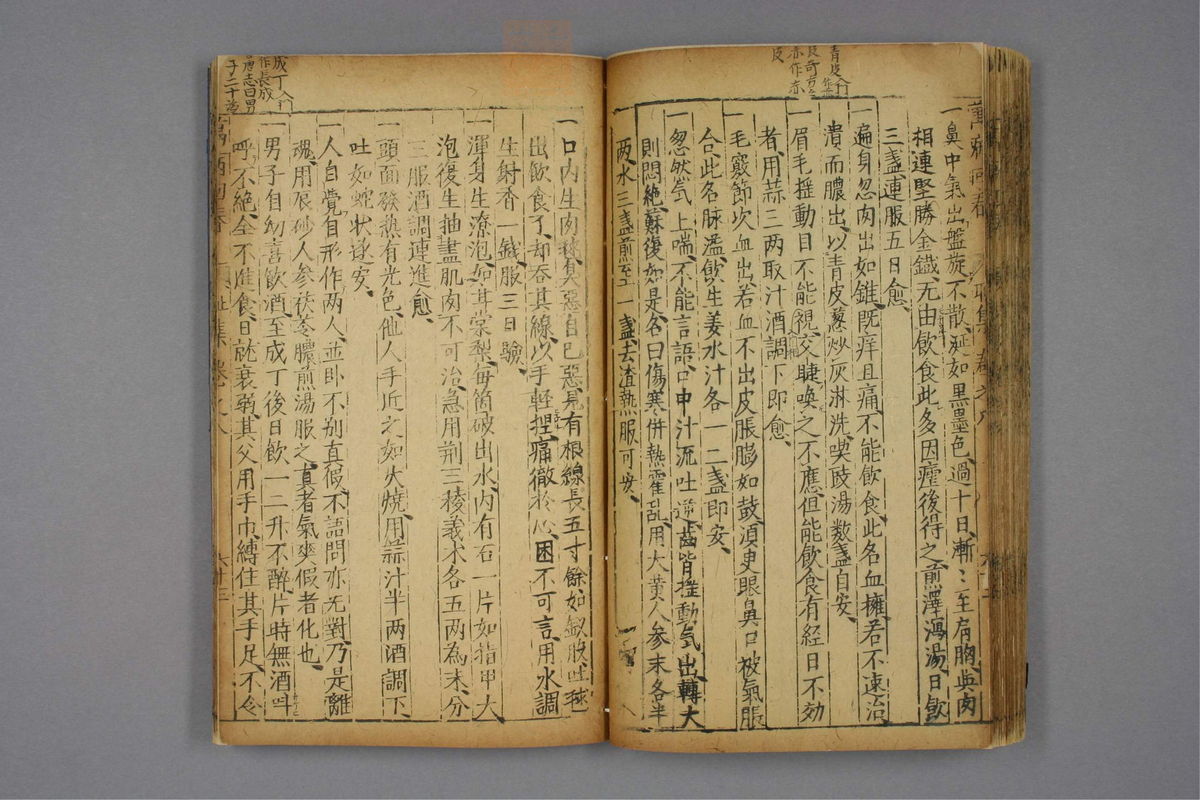 青皮入門
作
皮奇方
亦作赤
皮
萬病回春
一鼻中氣出盤旋不散涎如黒墨色過十日漸〻至肩胸與肉
相連堅勝金鐵无由飲食此多因瘧後得之煎澤瀉湯日飲
三盞連服五日愈
一遍身忽肉出如錐既痒且痛不能飲食此名血擁若不速治
潰而膿出以青皮蔥炒灰淋洗喫豉湯数盞自安
一眉毛揺動目不能視交睫喚之不應但能飲食有經日不効
者用蒜三两取汁酒調下即愈
一毛竅節次血出若血不出皮脹膨如鼓湏吏眼鼻口被氣脹
合此名脉溢飲生姜水汁各一二盞即安
一忽然気上喘不能言語口中汁流吐逆齒皆揺動気出轉大
則悶絶蘇復如是名曰傷寒併熱霍乱用大黄人参末各半
两水三盞煎至一盞去渣熱服可安
一口内生肉毬臭惡自已惡見有根線長五寸餘如釵股吐毬
出飲食了却吞其線以手輕捏痛徹於心困不可言用水調
生射香一錢服三日驗
一渾身生潦泡如甘棠梨每箇破出水内有石一片如指甲大
泡復生抽盡肌肉不可治急用荆三稜莪术各五两為末分
三服酒調連進愈
一頭面發熱有光色他人手近之如火燒用蒜汁半两酒調下
吐如蛇状遂安
一人自覺自形作两人並卧不别真假不語問亦无對乃是離
魂用辰砂人参茯苓膿煎湯服之真者氣爽假者化也
一男子自幼喜飲酒至成丁後日飲一二升不醉片時無酒叫
呼不絶全不進食日就衰弱其父用手巾縛住其手足不令
成丁入門
作長成
唐志曰男
子二十
萬病回春
六十三